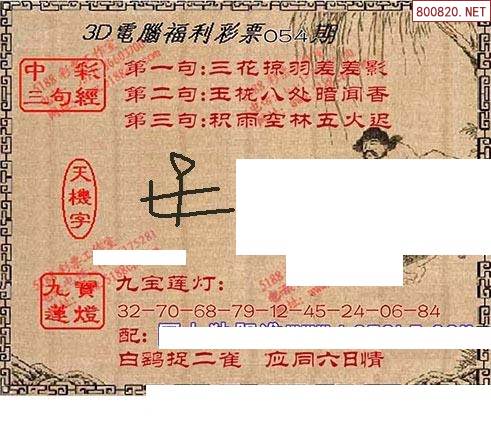 800820.NET
3D電腦福利彩票054期
中彩
三句經
第一句:三花掠羽差差影
第二句:玉栊八处暗闻香
第三句:积雨空林五火迟
天機字
九寶
蓮燈
九宝莲灯:
32-70-68-79-12-45-24-06-84
配:
白鹞捉二雀 应同六日情